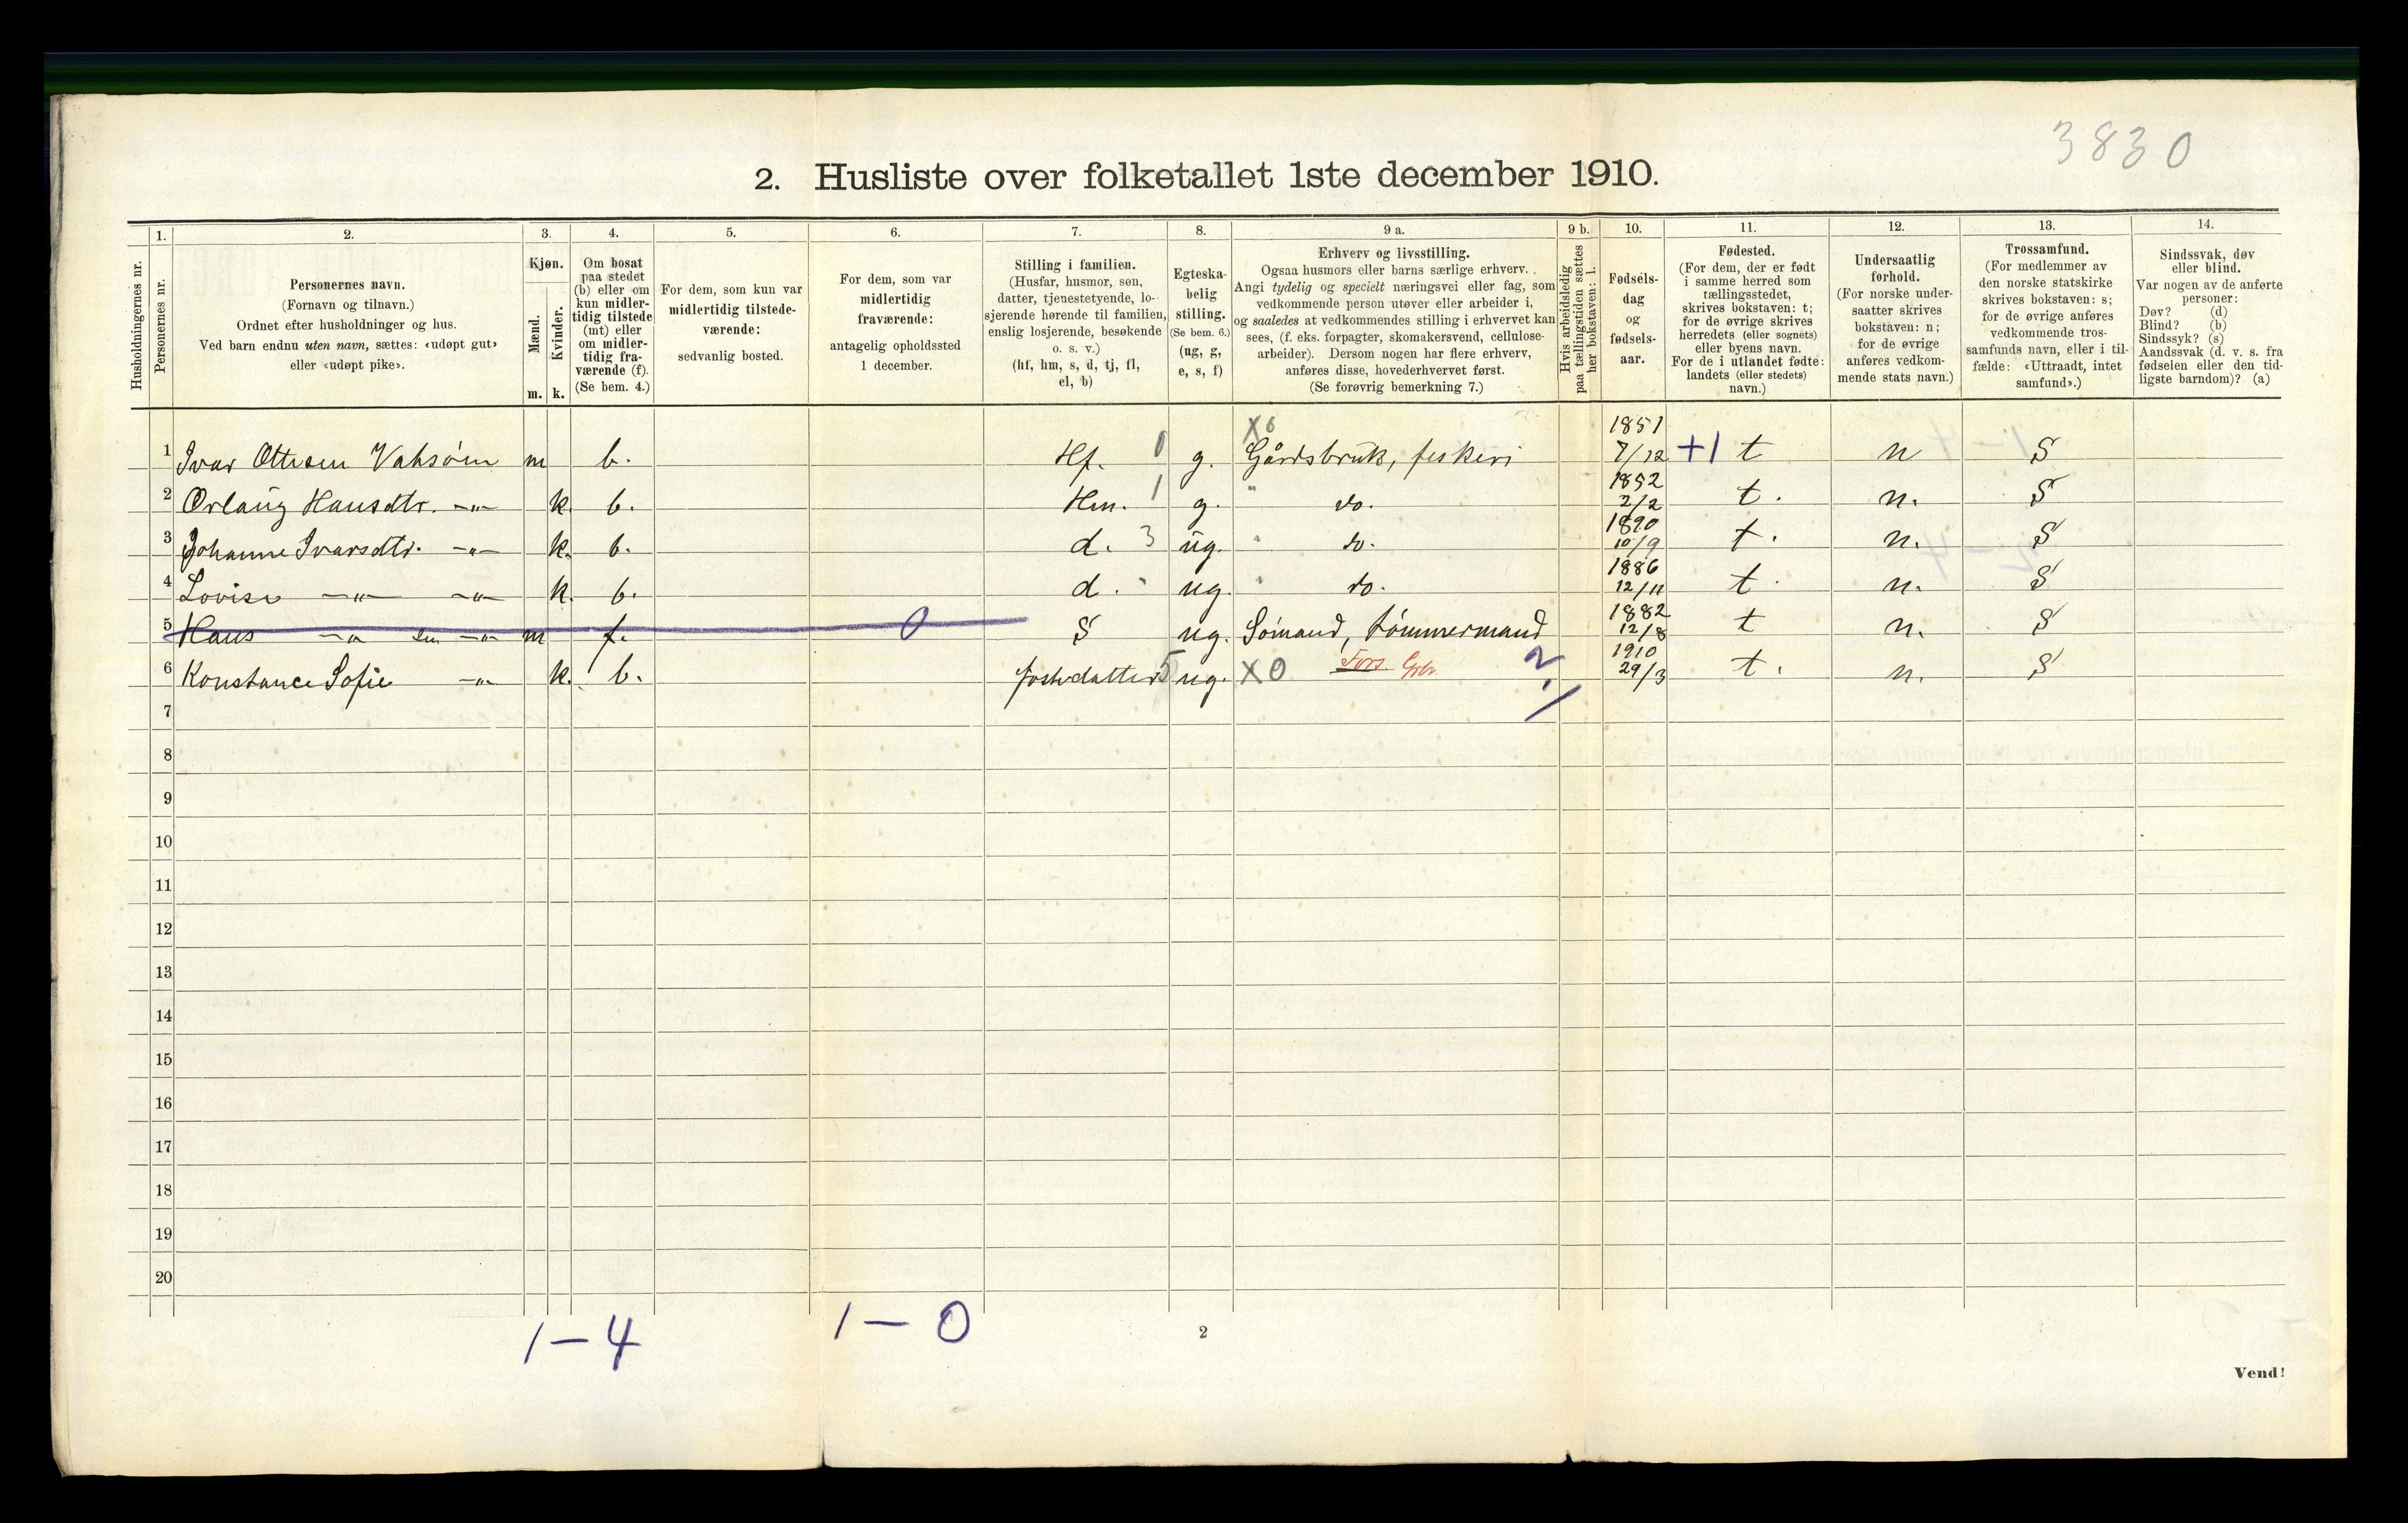 3830
2. Husliste over folketallet 1ste december 1910.
1. 2. 3. 4. 5. 6. 7. 8. 9 a. 9 b. 10. 11. 12. 13. 14.
Husholdningernes nr.
Personernes nr.
Personernes navn.
(Fornavn og tilnavn.)
Ordnet efter husholdninger og hus.
Ved barn endnu uten navn, sættes: «udøpt gut»
eller «udøpt pike».
Kjøn.
Mænd.
Kvinder.
m. k.
Om bosat
paa stedet
(b) eller om
kun midler-
tidig tilstede
(mt) eller
om midler-
tidig fra-
værende (f).
(Se bem. 4.)
For dem, som kun var
midlertidig tilstede-
værende:
sedvanlig bosted.
For dem, som var
midlertidig
fraværende:
antagelig opholdssted
1 december.
Stilling i familien.
(Husfar, husmor, søn,
datter, tjenestetyende, lo-
sjerende hørende til familien,
enslig losjerende, besøkende
o. s. v.)
(hf, hm, s, d, tj, fl,
el, b)
Egteska-
belig
stilling.
(Se bem. 6.)
(ug, g,
e, s, f)
Erhverv og livsstilling.
Ogsaa husmors eller barns særlige erhverv.
Angi tydelig og specielt næringsvei eller fag, som
vedkommende person utøver eller arbeider i,
og saaledes at vedkommendes stilling i erhvervet kan
sees, (f. eks. forpagter, skomakersvend, cellulose-
arbeider). Dersom nogen har flere erhverv,
anføres disse, hovederhvervet først.
(Se forøvrig bemerkning 7.)
Hvis arbeidsledig
paa tællingstiden sættes
her bokstaven: l.
Fødsels-
dag
og
fødsels-
aar.
Fødested.
(For dem, der er født
i samme herred som
tællingsstedet,
skrives bokstaven: t;
for de øvrige skrives
herredets (eller sognets)
eller byens navn.
For de i utlandet fødte:
landets (eller stedets)
navn.)
Undersaatlig
forhold.
(For norske under-
saatter skrives
bokstaven: n;
for de øvrige
anføres vedkom-
mende stats navn.)
Trossamfund.
(For medlemmer av
den norske statskirke
skrives bokstaven: s;
for de øvrige anføres
vedkommende tros-
samfunds navn, eller i til-
fælde: «Uttraadt, intet
samfund».)
Sindssvak, døv
eller blind.
Var nogen av de anførte
personer:
Døv? (d)
Blind? (b)
Sindssyk? (s)
Aandssvak (d. v. s. fra
fødselen eller den tid-
ligste barndom)? (a)
X0 1851
1 Ivar Ottesen m b. Hf. 0 g. Gårdsbruk, fiskeri 7/12 +1 t n S
1852
2 Orlaug Hansdtr. -"- k. b. Hm. 1 g. " do. 2/2 t. n. S
1890
3 Johanne Ivarsdtr. -"- k. b. d. 3 ug. " do. 10/9 t. n. S
1886
4 Lovise -"- -"- k. b. d. " ug. " do. 12/11 t n. S
1882
5 Hans -"- sn -"- m f. 0 S ug. Sømand, tømmermand 12/8 t n. S
1910
6 Konstance Sofie -"- k. b. fosterdatter 5 ug. X0 Fors. Grbr 2. 29/3 t. n. S
7
8
9
10
11
12
13
14
15
16
17
18
19
20
1 – 4 1 – 0
2
Vend!